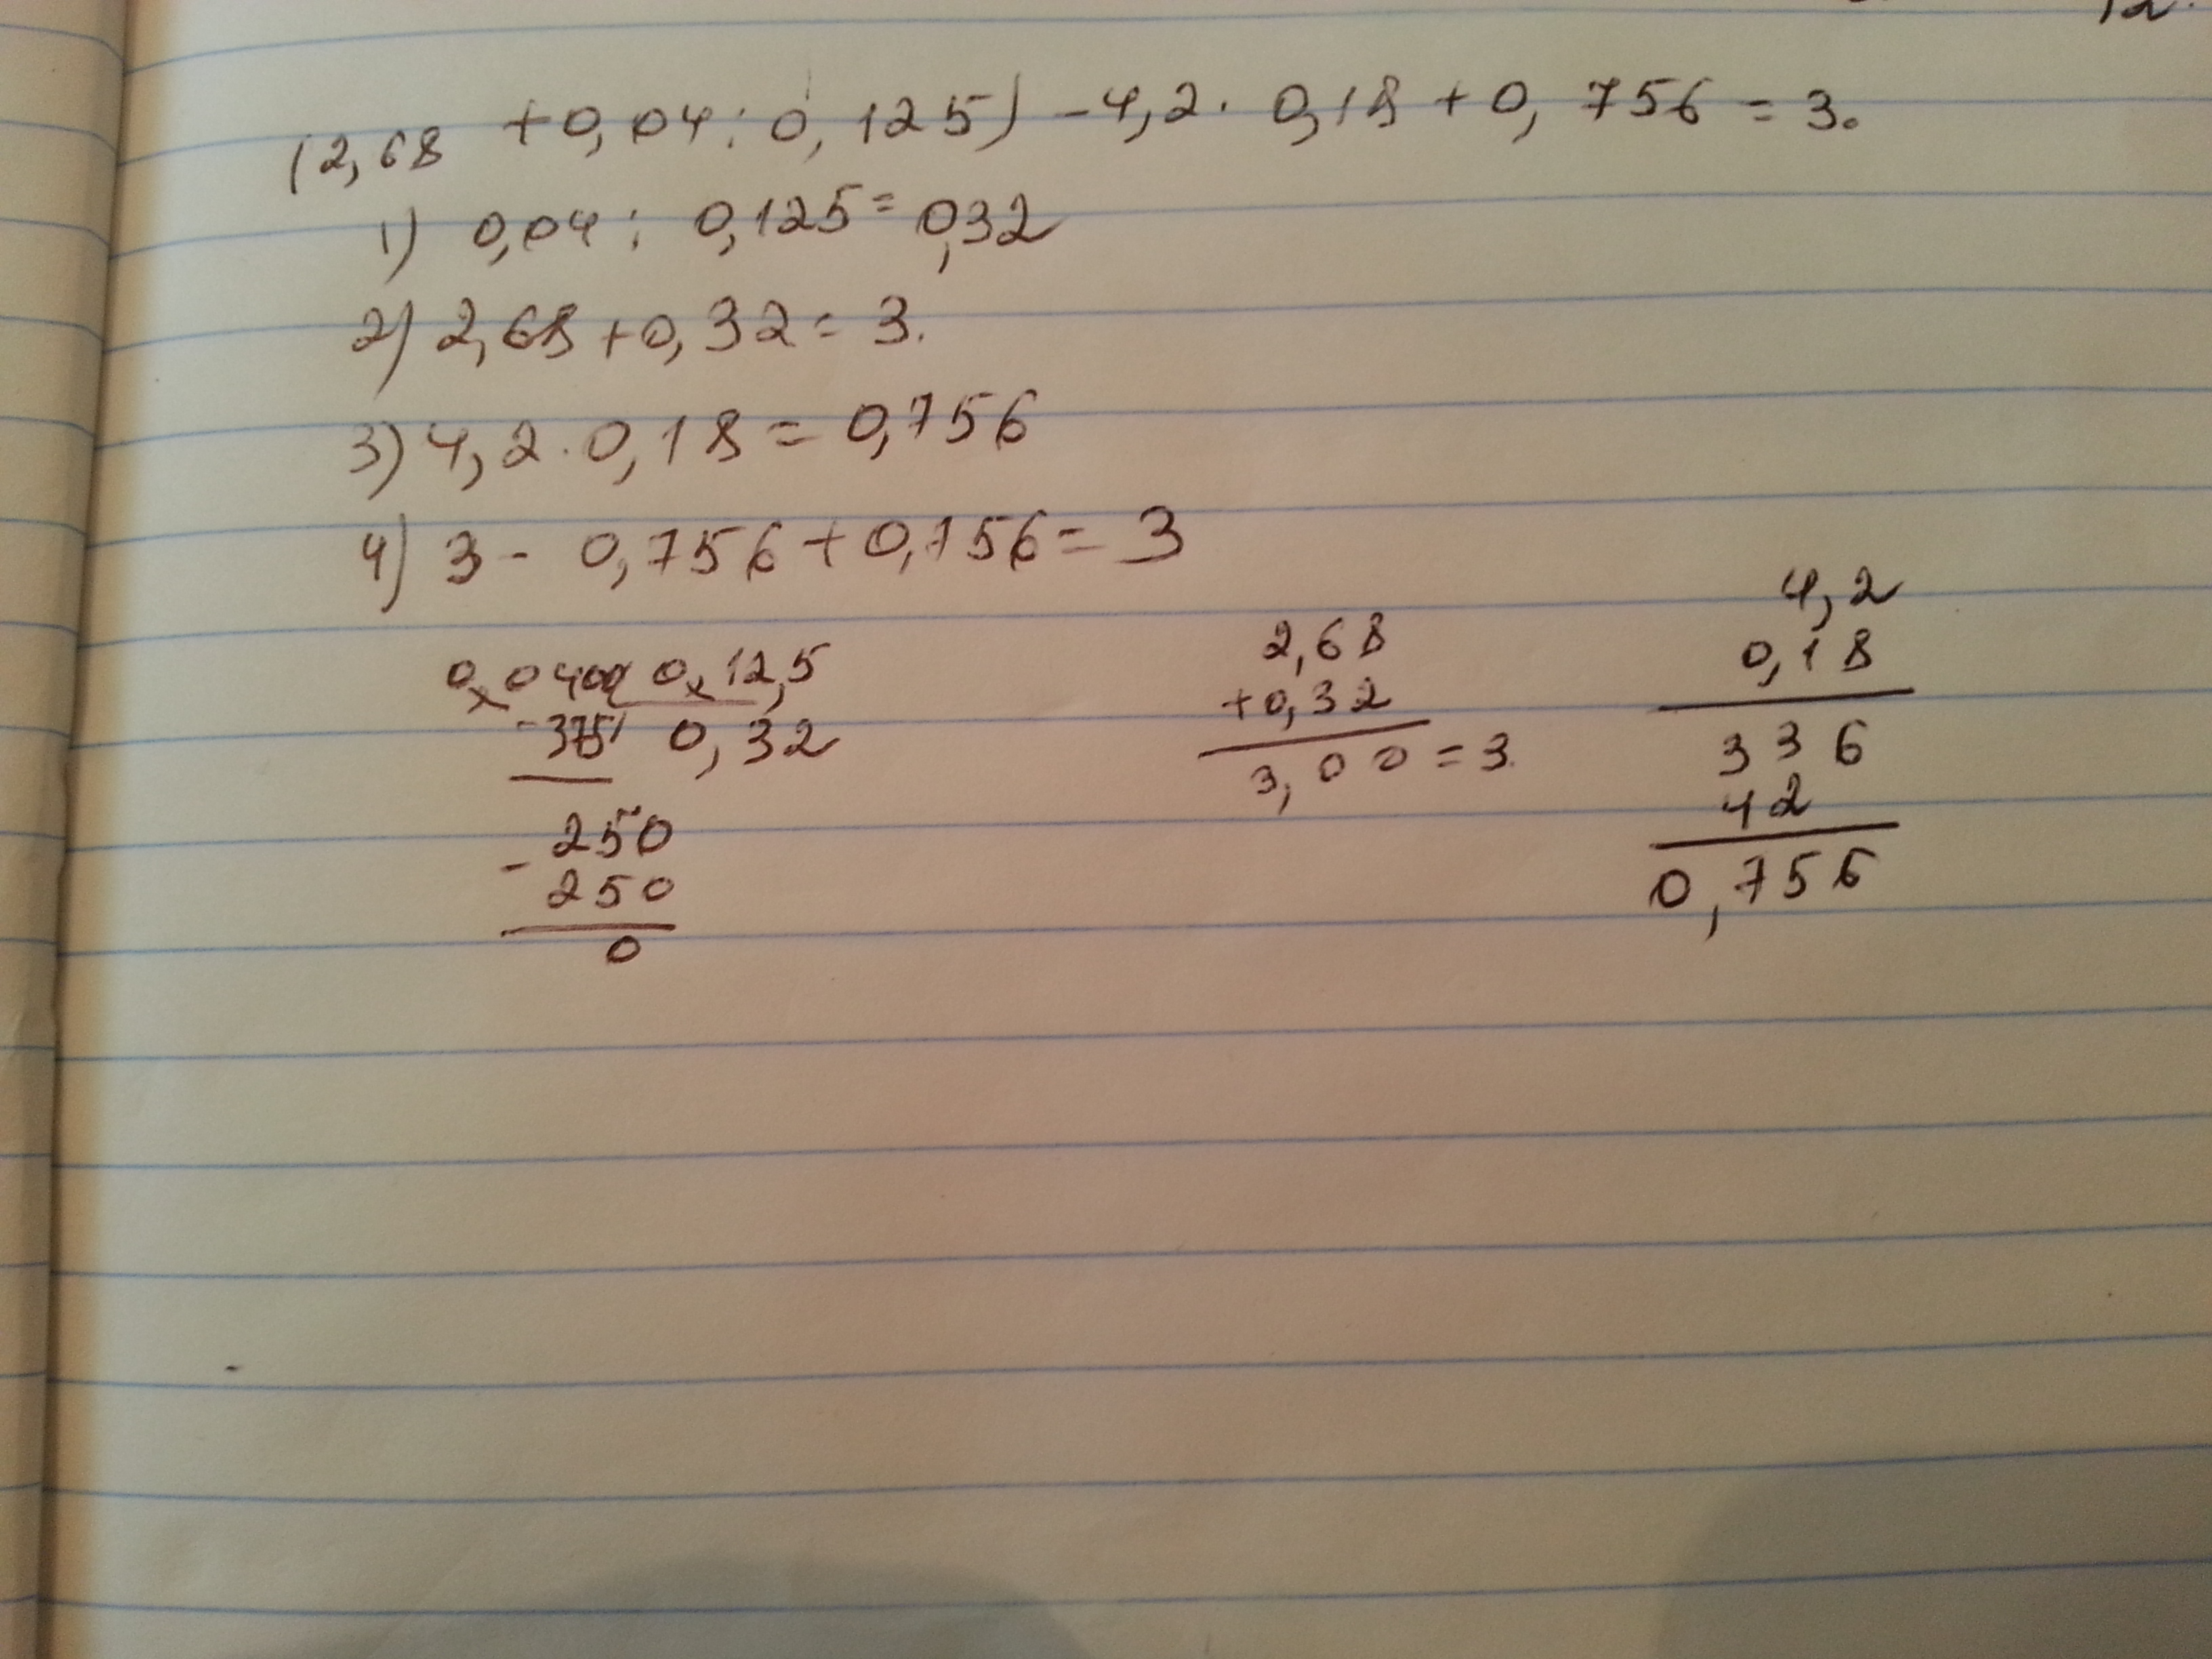 12.
(2,68 + 0,04 : 0,125) - 4,2 · 0,18 + 0,756 = 3.
1) 0,04 : 0,125 = 0,32
2) 2,68 + 0,32 = 3.
3) 4,2 · 0,18 = 0,756
4) 3 - 0,756 + 0,756 = 3
0,0400 0,12,5
- 375 0,32
250
- 250
0
2,68
+ 0,32
3,00 = 3.
4,2
0,18
336
42
0,756